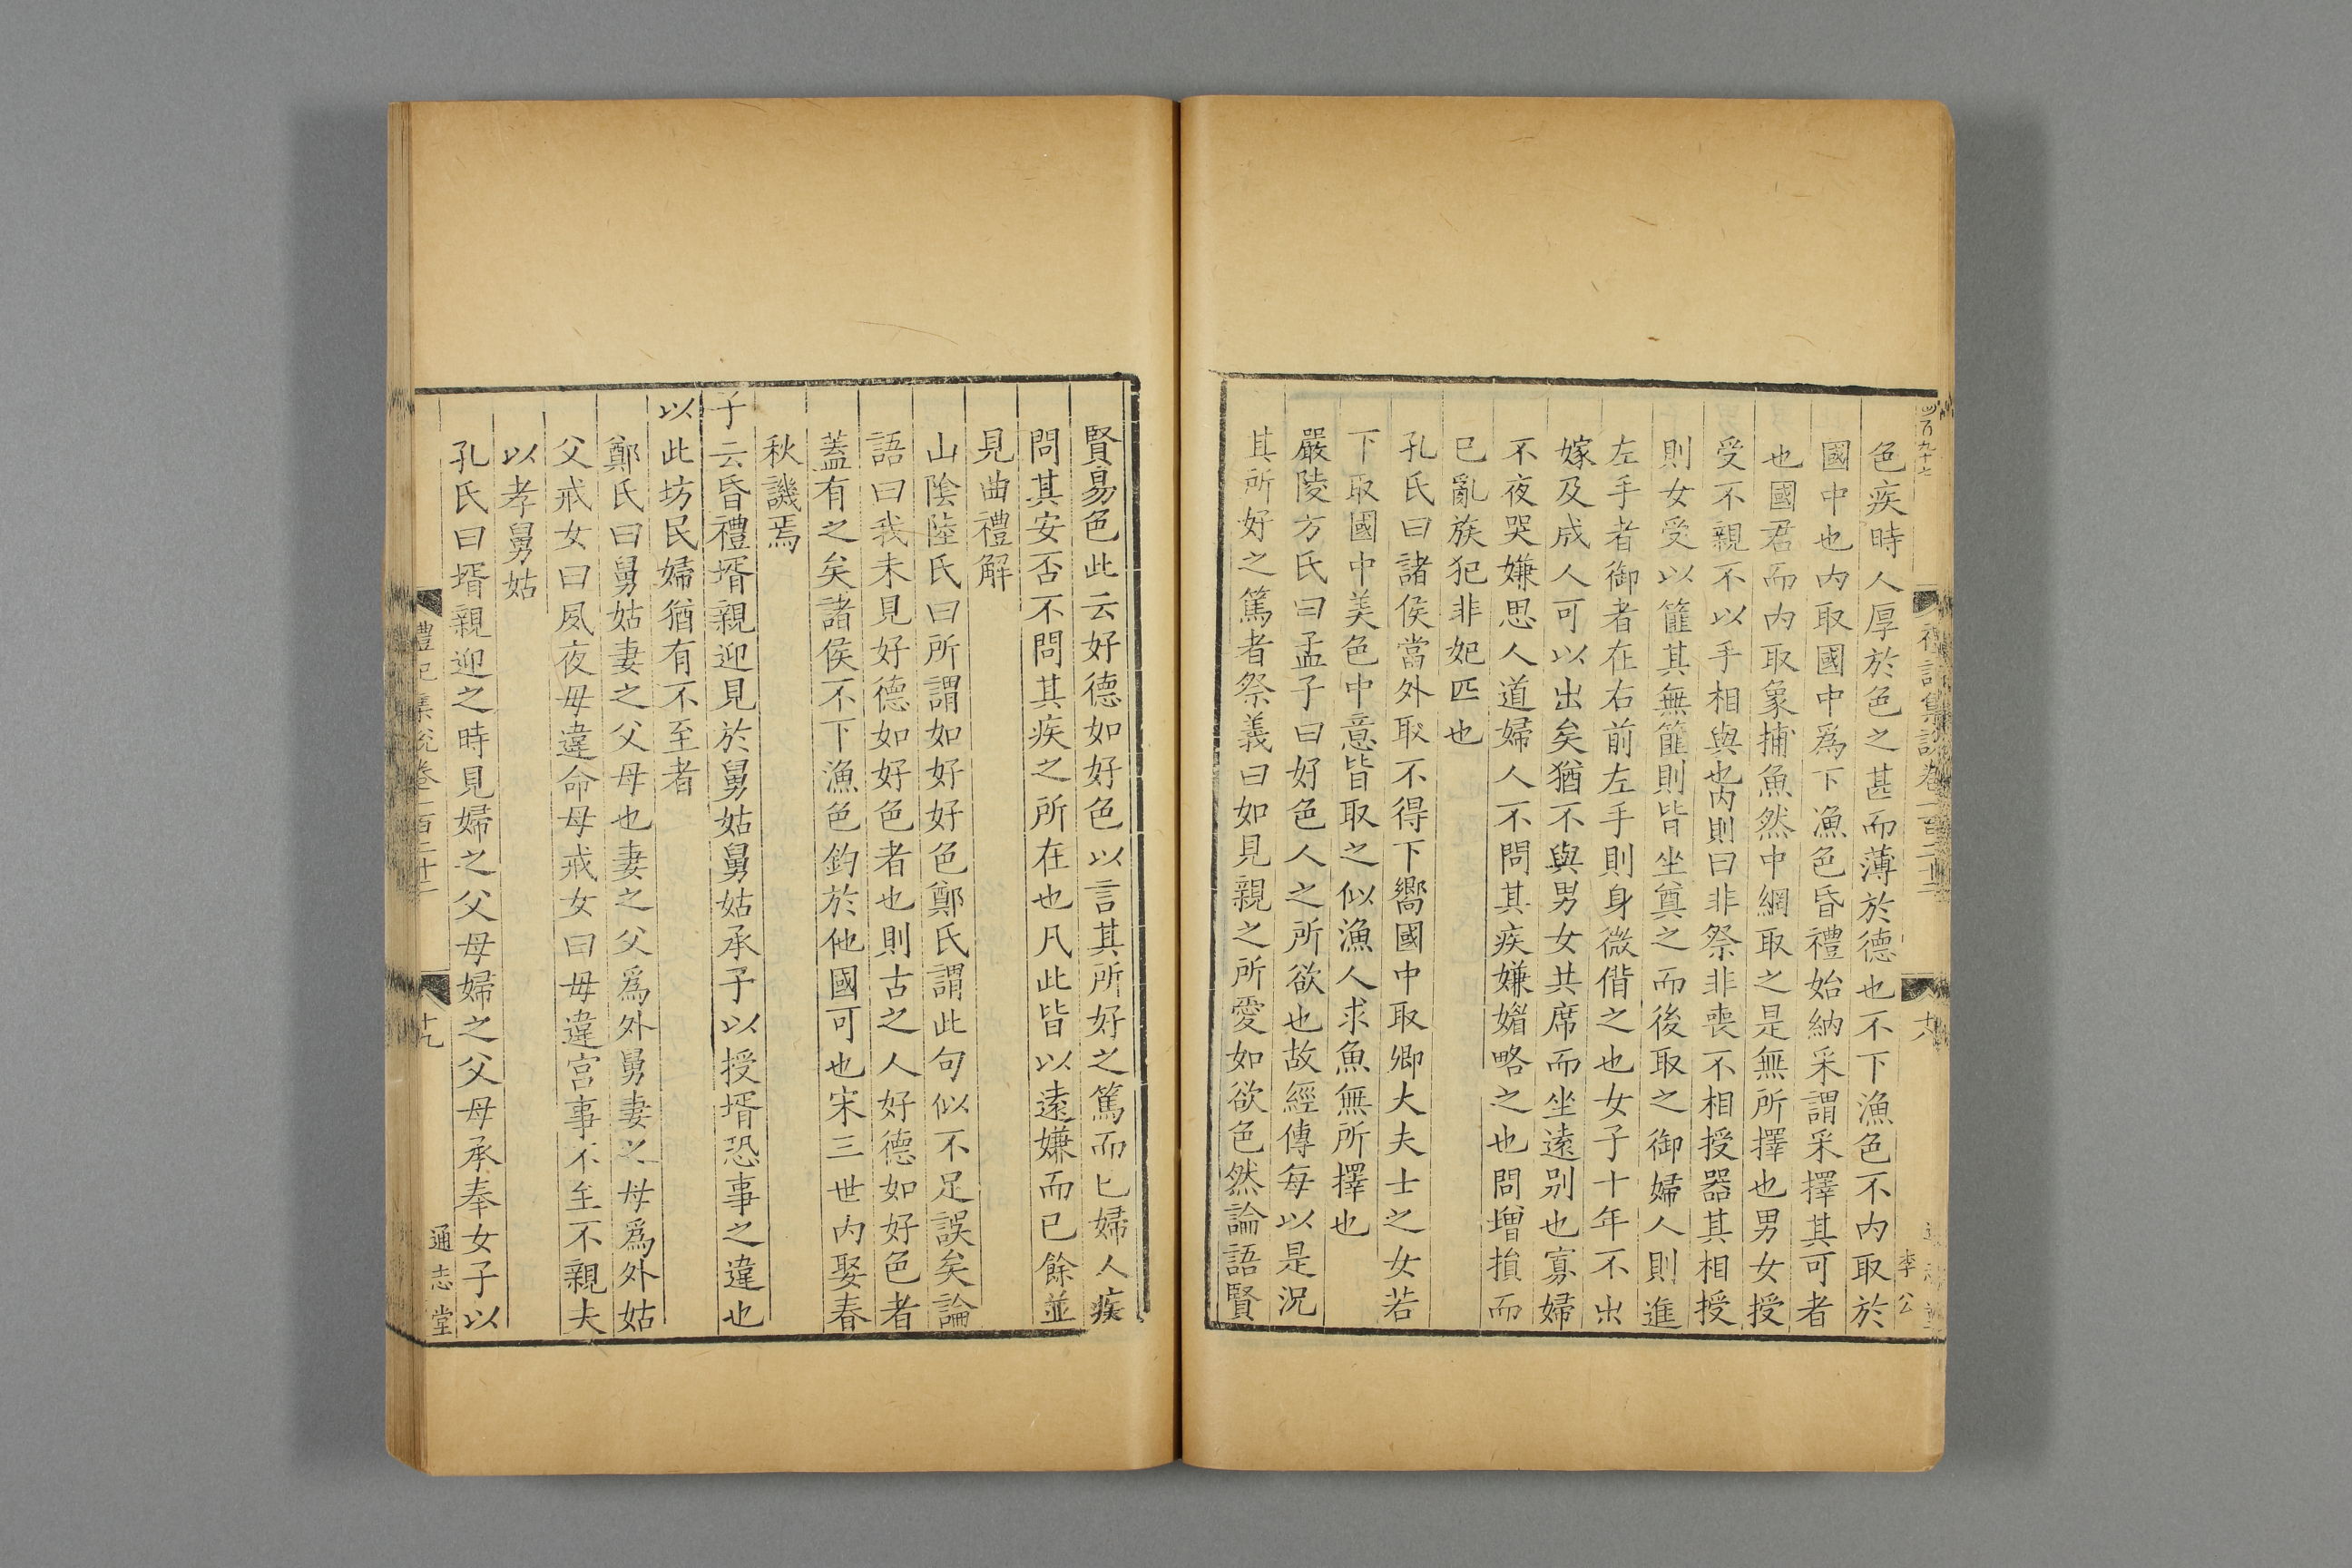 四百九十七
禮記集說卷一百二十二
十八
李公
色疾時人厚於色之甚而薄於德也不下漁色不内取於
國中也内取國中爲下漁色昏禮始納采謂采擇其可者
也國君而内取象捕魚然中網取之是無所擇也男女授
受不親不以手相與也内則曰非祭非喪不相授器其相授
則女受以篚其無篚則皆坐奠之而後取之御婦人則進
左手者御者在右前左手則身微偝之也女子十年不出
嫁及成人可以出矣猶不與男女共席而坐遠别也寡婦
不夜哭嫌思人道婦人不問其疾嫌媚略之也問增損而
已亂族犯非妃匹也
孔氏曰諸侯當外取不得下嚮國中取卿大夫士之女若
下取國中美色中意皆取之似漁人求魚無所擇也
嚴陵方氏曰孟子曰好色人之所欲也故經傳每以是況
其所好之篤者祭義曰如見親之所愛如欲色然論語賢
賢易色此云好德如好色以言其所好之篤而已婦人疾
問其安否不問其疾之所在也凡此皆以遠嫌而已餘並
見曲禮解
山陰陸氏曰所謂如好好色鄭氏謂此句似不足誤矣論
語曰我未見好德如好色者也則古之人好德如好色者
蓋有之矣諸侯不下漁色鈞於他國可也宋三世内娶春
秋譏焉
子云昏禮壻親迎見於舅姑舅姑承子以授壻恐事之違也
以此坊民婦猶有不至者
鄭氏曰舅姑妻之父母也妻之父爲外舅妻之母爲外姑
父戒女曰夙夜毋違命母戒女曰毋違宫事不至不親夫
以孝舅姑
孔氏曰壻親迎之時見婦之父母婦之父母承奉女子以
禮記集說卷一百二十二
十九
通志堂